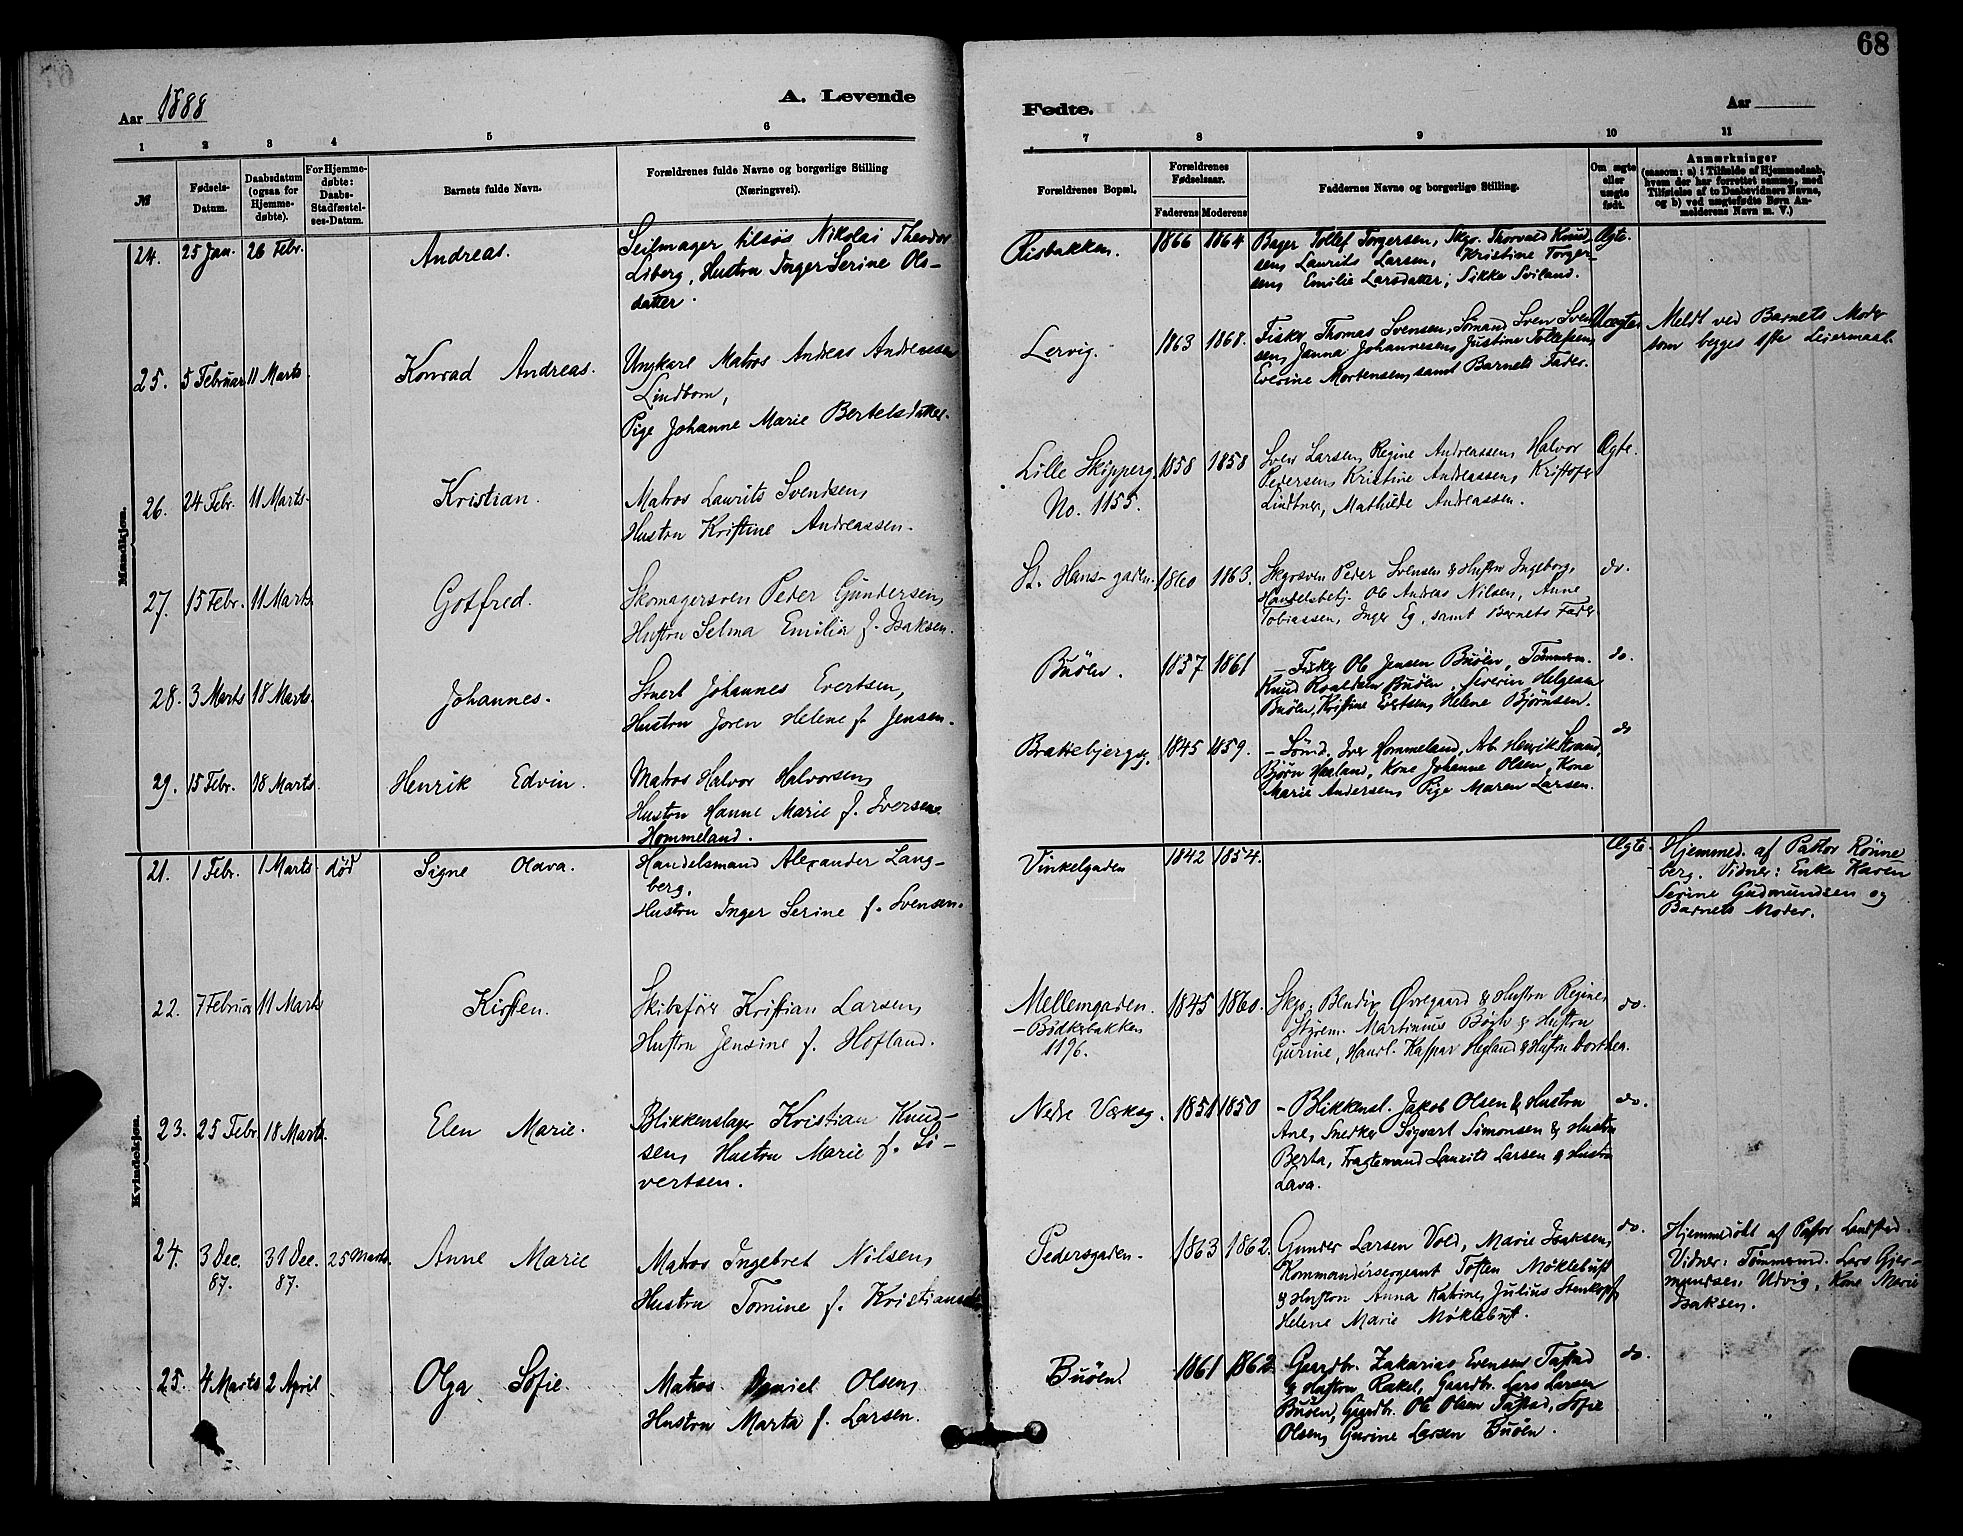 68
Aar 1888
A. Levende
Fødte.
Aar
1 2 3 4 5 6
7 8 9 10 11
№
Fødsels-
Datum.
Daabsdatum
(ogsaa for
Hjemme-
døbte).
For Hjemme-
døbte:
Daabs-
Stadfæstel-
ses-Datum.
Barnets fulde Navn.
Forældrenes fulde Navne og borgerlige Stilling
(Næringsvei).
Forældrenes Bopæl.
Forældrenes
Fødselsaar.
Faderens
Moderens
Faddernes Navne og borgerlige Stilling.
Om ægte
eller
uægte
født.
Anmærkninger
(saasom: a) i Tilfælde af Hjemmedaab,
hvem der har forrettet samme, med
Tilføielse af to Daabsvidners Navne,
og b) ved uægtefødte Børn An-
melderens Navn m. V.)
Mandkjøn.
24. 25 Jan. 26 Febr. Andreas.
Seilmager tilsøs Nikolai Theodor
Liberg, Hustru Inger Serine Ols-
datter.
Risbakken. 1866 1864
Bager Tollef Torgersen, Skgr. Thorvald Knud-
sen, Laurits Larsen, Kristine Torger-
sen, Emilie Larsdatter, Sikke Sviland.
Ægte.
25. 5 Februar 11 Marts. Konrad Andreas.
Ungkarl Matros Andreas Andreassen
Lindbom,
Pige Johanne Marie Bertelsdatter.
Lervig. 1863 1868.
Fisker Thomas Svensen, Sømand Sven Sven-
sen, Janna Johannesen, Justine Tollefsen,
Everine Mortensen, samt Barnets Fader.
Uægte
Meldt ved Barnets Moder
som begges 1ste Leiermaal.
26. 24 Febr. 11 Marts. Kristian.
Matros Laurits Svendsen,
Hustru Kristine Andreassen.
Lille Skipperg.
No. 1155.
1858 1858
Sven Larsen, Regine Andreassen, Halvor
Pedersen, Kristine Andreassen, Kristofer
Lindtner, Mathilde Andreassen.
Ægte.
27. 15 Febr. 11 Marts. Gotfred.
Skomagersven Peder Gundersen,
Hustru Selma Emilia f. Isaksen.
St. Hans-gaden. 1860 1863.
Skgrsven Peder Svensen & Hustru Ingeborg,
Handelsbetj. Ole Andreas Nilsen, Anne
Tobiassen, Inger Eg, samt Barnets Fader
do.
28. 3 Marts 18 Marts. Johannes.
Stuert Johannes Evertsen,
Hustru Joren Helene f. Jensen.
Buöen. 1857 1861
- Fisker Ole Jensen Buöen, Tömmerm.
Knud Roaldsen Buöen, Severin Helgesen
Buöen, Kristine Evertsen, Helene Bjørnsen.
do.
29. 15 Febr. 18 Marts. Henrik Edvin.
Matros Halvor Halvorsen,
Hustru Hanne Marie f. Iversen
Hommeland.
Brattebjergg. 1845 1859.
- Sömd. Iver Hommeland, Arb. Henrik Strand,
Bjørn Haaland, Kone Johanne Olsen, Kone
Marie Andersen, Pige Maren Larsen.
do
Kvindekjøn.
21. 1 Febr. 1 Marts. død Signe Olava.
Handelsmand Alexander Lang-
berg,
Hustru Inger Serine f. Svensen.
Vinkelgaden 1842 1854.
Ægte.
Hjemmed. af Pastor Rönne-
berg. Vidner: Enke Karen
Serine Gudmundsen og
Barnets Moder.
22. 7 Februar 11 Marts Kirsten.
Skibsfører Kristian Larsen,
Hustru Jensine f. Hofland.
Mellemgaden.
- Bödkerbakken
1196.
1845 1860.
Skgr. Bendix Øvregaard & Hustru Regine,
Styrem. Martinus Bögh & Hustru
Gurine, Handl. Kaspar Høgland & Hustru Dorthea.
do.
23. 25 Febr. 18 Marts. Elen Marie.
Blikkenslager Kristian Knud-
sen, Hustru Marie f. Si-
vertsen.
Nedre Værksg. 1851 1850
- Blikkensl. Jakob Olsen & Hustru
Ane, Snedker Sigvart Simonsen & Hustru
Berta, Fragtemand Laurits Larsen & Hustru
Lava.
do.
24. 3 Dec. 87. 31 Dec. 87. 25 Marts. Anne Marie
Matros Ingebret Nilsen,
Hustru Tomine f. Kristiansen
Pedersgaden. 1863 1862.
Gunder Larsen Vold, Marie Isaksen,
Kommandérsergeant Tosten Möklebust
& Hustru Anna Katrine, Julius Stenkopf,
Helene Marie Möklebust.
do.
Hjemmedöbt af Pastor Landstad.
Vidner: Tömmermd. Lars Gjer-
mundsen Udvig, Kone Marie
Isaksen.
25. 4 Marts 2 April Olga Sofie.
Matros Daniel Olsen,
Hustru Marta f. Larsen.
Buöen. 1861 1862
Gaardbr. Zakarias Evensen Tastad
& Hustru Rakel, Gaardbr. Lars Larsen
Buöen, Gaardbr. Ole Olsen Tastad, Sofie
Olsen, Gurine Larsen Buöen.
do.